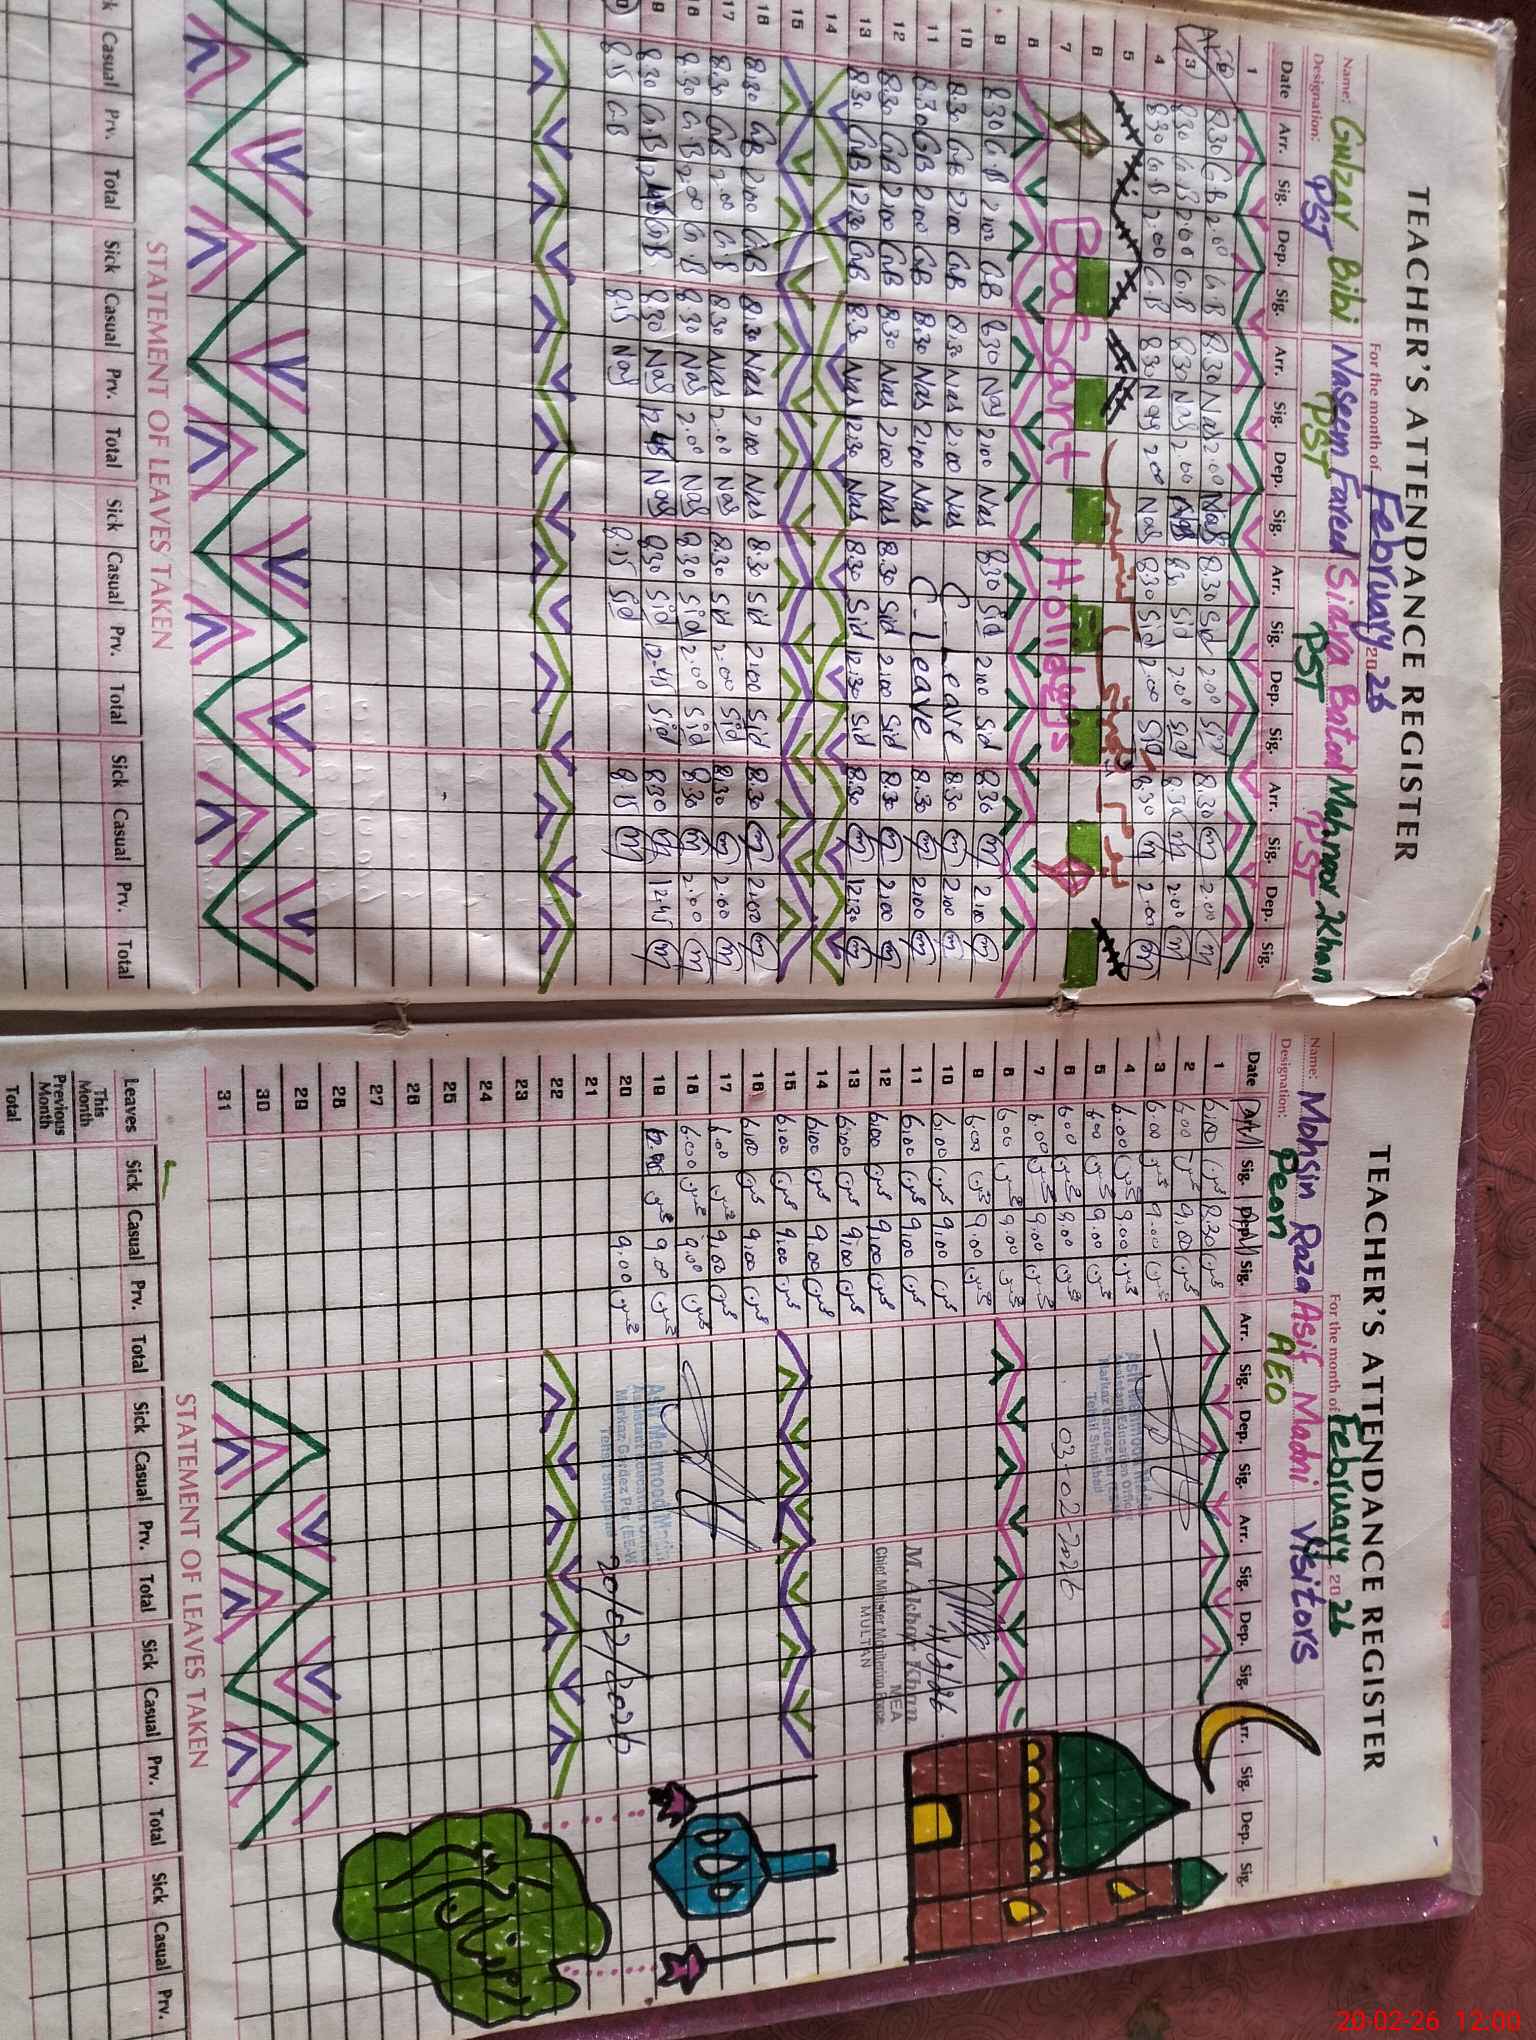 TEACHER'S ATTENDANCE REGISTER
For the month of February 2026
Name: Gulzar Bibi Naseem Fareed Sidra Batool Mahnoor Khan
Designation: PST PST PST PST
Date Arr. Sig. Dep. Sig. Arr. Sig. Dep. Sig. Arr. Sig. Dep. Sig. Arr. Sig. Dep. Sig.
1
2 8.30 GB 2.00 G.B 8.30 Nas 2.00 Nas 8.30 Sid 2.00 Sid 8.30 m 2.00 m
3 8.30 G.B 2.00 G.B 8.30 Nas 2.00 Nas 8.30 Sid 2.00 Sid 8.30 m 2.00 m
4 8.30 G.B 2.00 G.B 8.30 Nas 2.00 Nas 8.30 Sid 2.00 Sid 8.30 m 2.00 m
5
6
7 Basant Holidays
8
9 8.30 G.B 2.00 GB 8.30 Nas 2.00 Nas 8.30 Sid 2.00 Sid 8.30 m 2.00 m
10 8.30 GB 2.00 GB 8.30 Nas 2.00 Nas C-Leave 8.30 m 2.00 m
11 8.30 GB 2.00 GB 8.30 Nas 2.00 Nas C-Leave 8.30 m 2.00 m
12 8.30 GB 2.00 GB 8.30 Nas 2.00 Nas 8.30 Sid 2.00 Sid 8.30 m 2.00 m
13 8.30 GB 12.30 GB 8.30 Nas 12.30 Nas 8.30 Sid 12.30 Sid 8.30 m 12.30 m
14
15
16 8.30 GB 2.00 GB 8.30 Nas 2.00 Nas 8.30 Sid 2.00 Sid 8.30 m 2.00 m
17 8.30 GB 2.00 G.B 8.30 Nas 2.00 Nas 8.30 Sid 2.00 Sid 8.30 m 2.00 m
18 8.30 G.B 2.00 G.B 8.30 Nas 2.00 Nas 8.30 Sid 2.00 Sid 8.30 m 2.00 m
19 8.30 GB 12.45 GB 8.30 Nas 12.45 Nas 8.30 Sid 12.45 Sid 8.30 m 12.45 m
8.15 GB 8.15 Nas 8.15 Sid 8.15 m
STATEMENT OF LEAVES TAKEN
Casual Prv. Total Sick Casual Prv. Total Sick Casual Prv. Total Sick Casual Prv. Total
TEACHER'S ATTENDANCE REGISTER
For the month of February 2026
Name: Mohsin Raza Asif Madni Visitors
Designation: Peon AEO
Date Arr. Sig. Dep. Sig. Arr. Sig. Dep. Sig. Arr. Sig. Dep. Sig. Arr. Sig. Dep. Sig.
1 6.00 8.30
2 6.00 9.00
3 6.00 9.00
4 6.00 9.00
5 6.00 9.00
6 6.00 9.00 03-02-2026
7 6.00 9.00
8 6.00 9.00
9 6.00 9.00
10 6.00 9.00 11/2/26
11 6.00 9.00 M. Akbar Khan
MEA
12 6.00 9.00 Chief Minister Monitoring Force
MULTAN
13 6.00 9.00
14 6.00 9.00
15 6.00 9.00
16 6.00 9.00
17 6.00 9.00
18 6.00 9.00
19 9.00 Asif Mahmood
Assistant Education
20 9.00 20/02/2026
21
22
23
24
25
26
27
28
29
30
31
STATEMENT OF LEAVES TAKEN
Leaves Sick Casual Prv. Total Sick Casual Prv. Total Sick Casual Prv. Total Sick Casual Prv.
This Month
Previous Month
Total
20-02-26 12:00